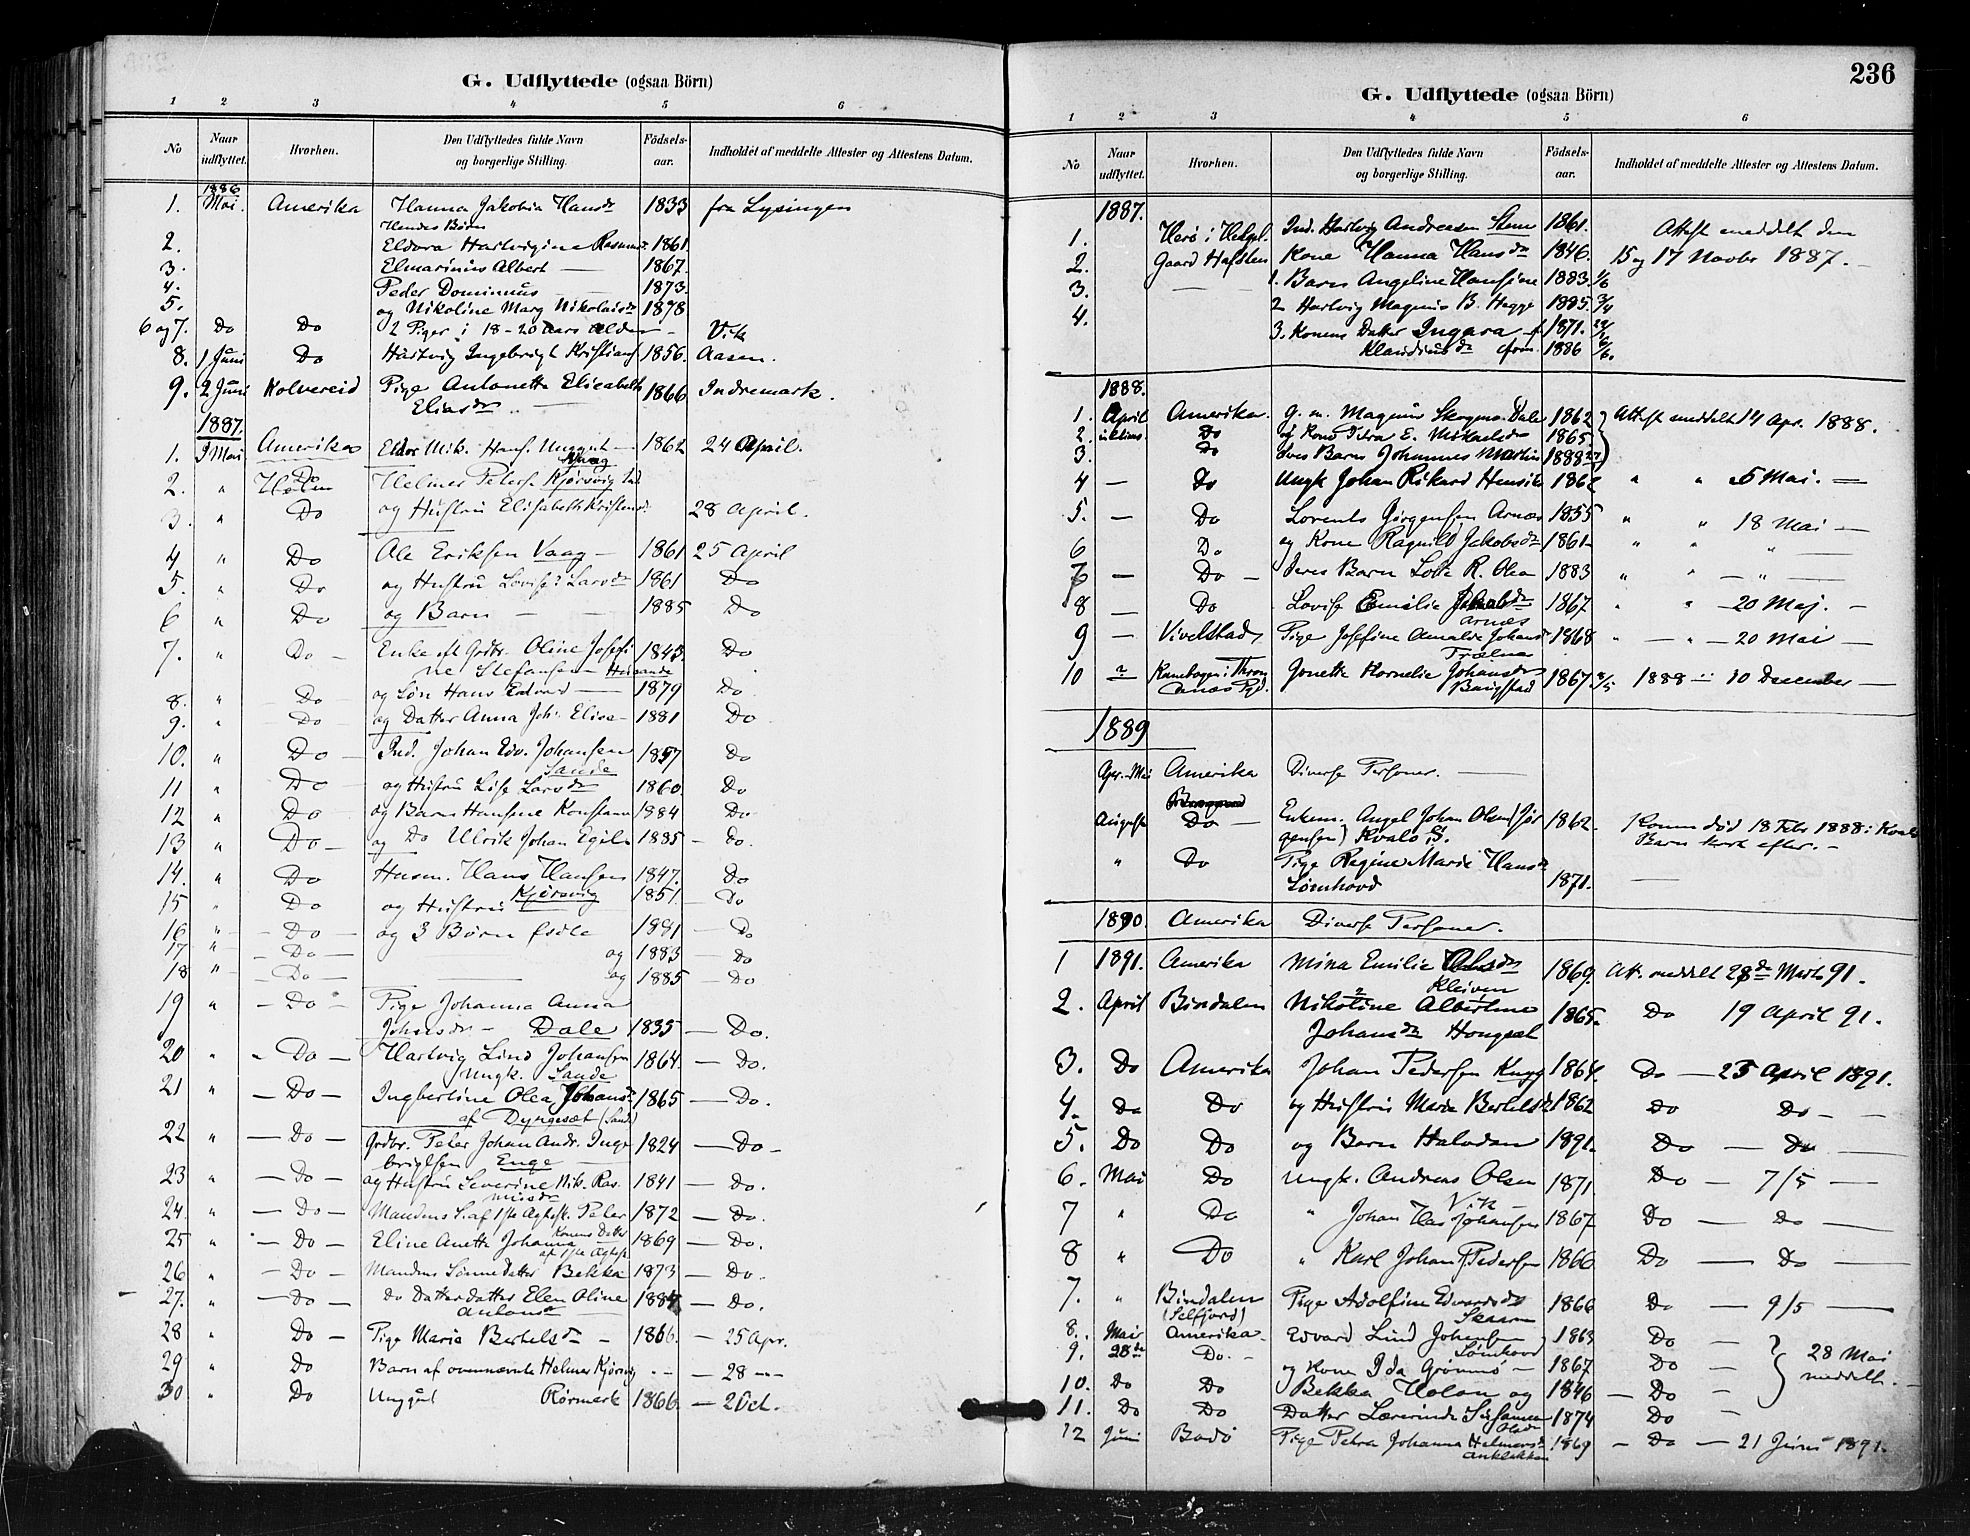 G. Udflyttede (ogsaa Börn)
1 2 3 4 5 6
No Naar udflyttet. Hvorhen. Den Udflyttedes fulde Navn og borgerlige Stilling. Födsels-aar. Indholdet af meddelte Attester og Attestens Datum.
1886
1. Mai. Amerika Hanna Jakobia Hansdr 1833 fra Lysingen
Hendes Börn
2. Eldora Hartvigine Rasmusd. 1861
3. Elmarinus Albert — 1867.
4. Peder Dominmus — 1873.
5. og Nikoline Marg Nikolaisdr 1878
6 og 7. Do Do 2 Piger i 18-20 Aars Alder — Vik
8. 1 Juni Do Hartvig Ingebrigt Kristians. 1856. Aasen.
9. 2 Juni Kolvereid Pige Antonette Elisabeth 1866 Indremark.
Eliasdr —
1887.
1. 9 Mai Amerika Mik. Hans. — 1862 24 April.
Vaag
2. " Do Helmer Peters. Kjörsvig Ind.
3. " Do og Hustru Elisabeth Kristensd. 28 April.
4 " Do Ole Eriksen Vaag — 1861 25 April
5. " Do og Hustru Lovise Larsdr 1861 Do
6 " Do og Barn — — 1885 Do
7. " Do — Enke eft Grdbr. Oline Josefi 1843. Do
ne Stefansen —
8. " Do — og Sön Hans Edvard — 1879 Do
9. " Do — og Datter Anna Joh. Elise — 1881 Do
10. " Do — Ind. Johan Edv. Johansen 1857 Do
Sande
11 " Do — og Hustru Lise Larsdr 1860. Do
12 " Do — og Barn Hansine Konstanse 1884 Do
13 " Do — og Do Ulrik Johan Egil 1885 — do.
14. " Do Husm. Hans Hansen 1847. Do
Kjörsvig
15 " Do og Hustru 1851. — Do
16 " — Do — og 3 Börn födte 1881 — Do
17 " — Do — og 1883 — do
18 " — Do — og 1885 — Do
19 " — Do — Pige Johanna Anna
Johansdr — Dale 1835 — Do.
20 " — Do — Hartvig Lind Johansen 1864. — Do.
Ungk. Sande
21 " — Do — Ingbertine Olea Johansd 1865 — Do.
af Dyrgesæt (Sande)
22 " — Do — Grdbr. Peter Johan Andr. Inge 1824 — Do —
brigtsen Enge
23 " — Do — og Hustru Severine Nik. Ras. 1841 — Do.
musdr
24. " — Do — Mandens S. af 1ste Ægtesk. Peter 1872 — Do.
25 " — Do — Eline Anetta Johanna Konens Datter 1869 — Do.
af 1ste Ægtesk.
26 " — Do — Mandens Sönnedatter Bekka 1873 — Do.
27. " — Do — do Datterdatter Elen Oline 1884 — Do.
Antonsdr
28 " Do — Pige Maria Bertelsdr — 1866. — 25 Apr.
29 " Do Barn af ovennævnte Helmer Kjörsvig — 28 —
30 " Do Unggut Rörmark 1866. — 2 Oct.
236
G. Udflyttede (ogsaa Börn)
1 2 3 4 5 6
No Naar udflyttet. Hvorhen. Den Udflyttedes fulde Navn og borgerlige Stilling. Födsels-aar. Indholdet af meddelte Attester og Attestens Datum.
1887.
1. Herö i Helgel. Ind. Hartvig Andreasen 1861. Attest meddelt den
2. Gaard Hafsten Kone Hanna Hansdr 1846. 15 og 17 Novbr 1887. —
3. — 1. Barn Angeline Hansine 1883 1/6
4. 2 Hartvig Magnus B. 1885. 3/4
3. Konens Datter Ingara f. 1871.
Klaudiusdr 1886
1888.
1. April Amerika. G. m. Magnus Dale 1862 Attest meddelt 14 Apr. 1888.
2. Do og Kone Petra E. Mikaelsdr 1865.
3. Do deres Barn Johannes Martin 1888
4 — Do Ungk Johan Rikard Henrik 1862 " " 5 Mai. —
5. — Do Lorents Jörgensen Arnæs 1855 " " 18 Mai —
6 Do og Kone Ragnild Jakobsdr 1861 " " " —
7 — Do — deres Barn Lotte R. Olea 1883 " " — " —
8 — Do Lovise Emilie Jakobsdr 1867 " " — 20 Maj. —
Arnæs
9 — Vivelstad Pige Josefine Amalie Johansd 1868 " — " — 20 Mai —
10 " i Thron Jonette Kornelie Johansdr 1867 8/5 1888 10 December —
Pgd. Baugstad
1889
Apr.-Mai Amerika Diverse Personer. —
August Do — Enkem. Angel Johan Olsen (Jör 1862. Konen död 18 Febr 1888 i Kvalö
gensen) Kvalö S. Barn kort efter. —
" Do Pige Regine Marie Hansdr
Sörnhovd 1871. —
1890. Amerika Diverse Personer.
1 1891. Amerika Mina Emilie Olsdr 1869. Att. meddelt 28de Marts 91.
Kleiven
2. April Bindalen Nikoline Albertine
Johansdr Hongsæt 1865. Do 19 April 91.
3. Do Amerika Johan Pedersen 1864. Do — 25 April 1891.
4. Do Do og Hustru Marie Bertelsdr 1862 Do Do — —
5. Do Do og Barn Halvdan 1891. Do — Do —
6. Mai Do Ungk. Andreas Olsen 1871. Do — 7/5 —
Vik —
7 " Do " Johan Johansen 1867 Do — Do —
8 " Do " Karl Johan Pedersen 1866 Do — Do —
7. " Bindalen Pige Adolfine Edvardsdr 1866 Do — 9/5 —
(Selfjord)
8. Mai Amerika — Edvard Lind Johansen 1863 Do —
Sörnhovd
9. 28de Do. — og Kone Ida Grönmo — 1867 Do — 28 Mai
10. Do Do Bekka Holan og 1846 — Do — meddelt. —
11. Do Do Datter Lærerinde 1874 Do —
12 Juni Bodö Pige Petra Johanna Helmersdr 1869 — Do — 21 Juni 1891.